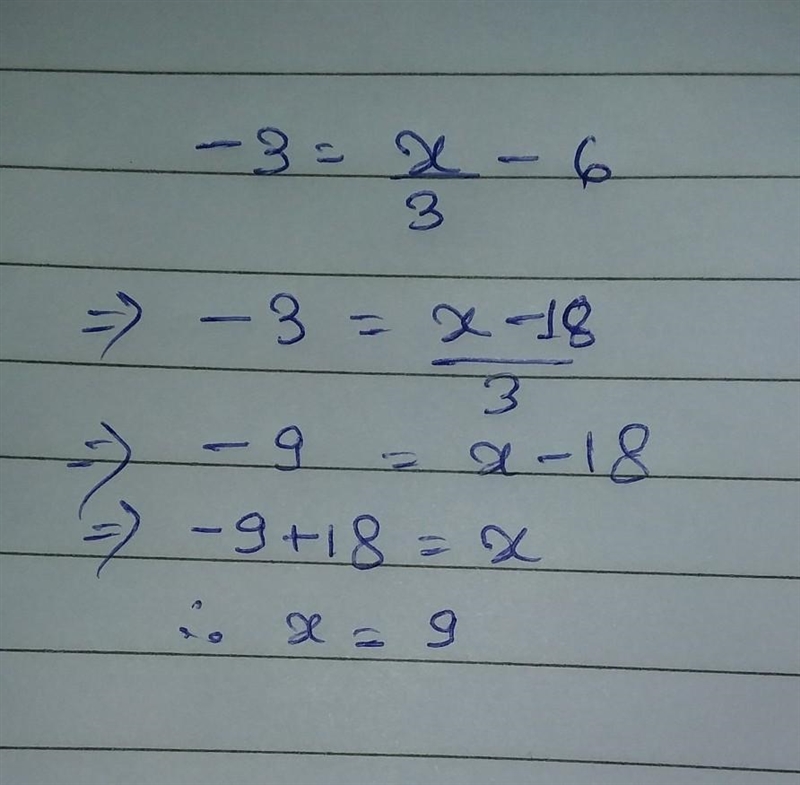 -3 = x/3 - 6
⇒ -3 = (x - 18)/3
⇒ -9 = x - 18
⇒ -9 + 18 = x
∴ x = 9